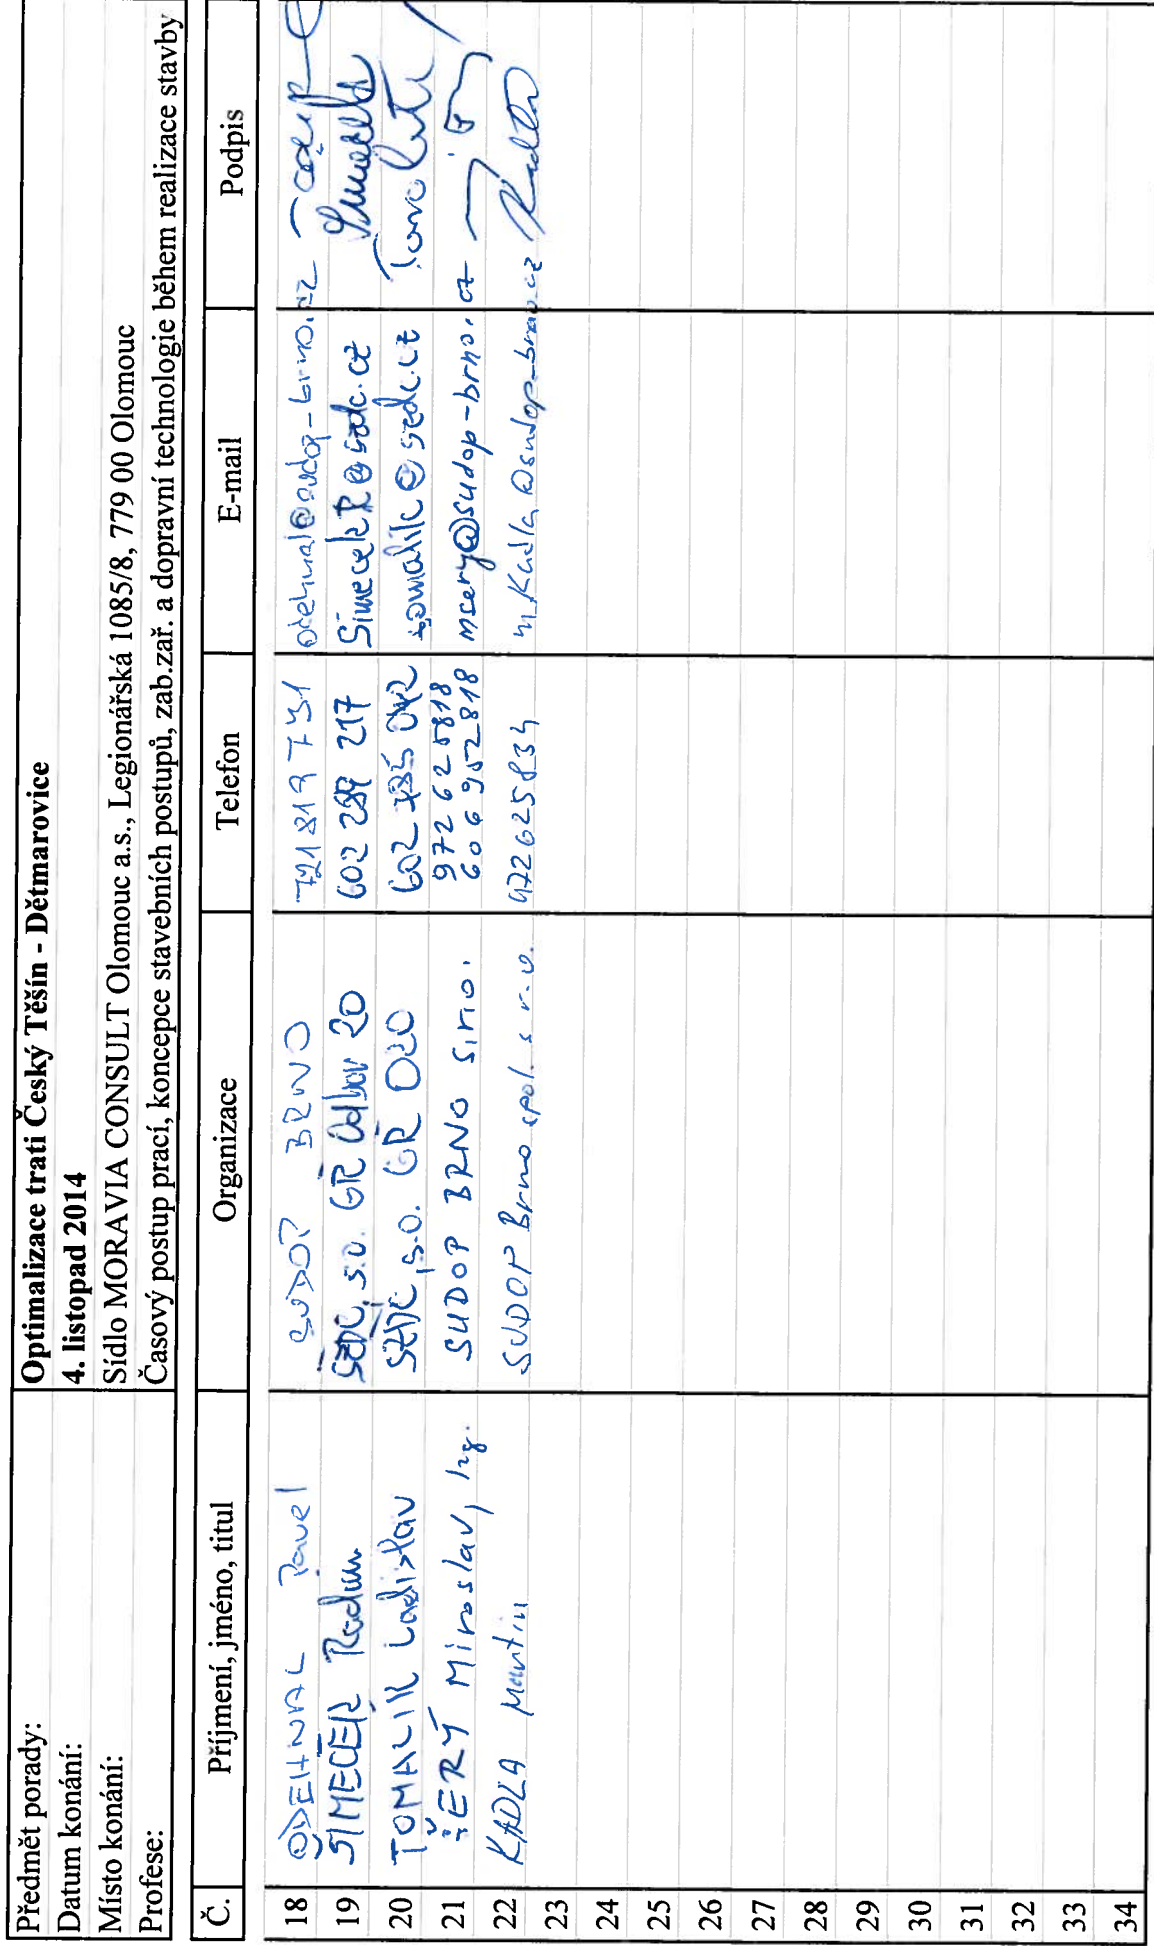 Předmět porady: Optimalizace trati Český Těšín - Dětmarovice
Datum konání: 4. listopad 2014
Místo konání: Sídlo MORAVIA CONSULT Olomouc a.s., Legionářská 1085/8, 779 00 Olomouc
Profese: Časový postup prací, koncepce stavebních postupů, zab.zař. a dopravní technologie během realizace stavby
Č. Příjmení, jméno, titul Organizace Telefon E-mail Podpis
18 ODEHNAL Pavel SUDOP BRNO 721 819 731
19 ŠIMEČEK Radim SŽDC, s.o. GŘ Odbor 20 602 289 217 Simecek R@szdc.cz
20 TOMALIK Ladislav SŽDC, s.o. GŘ O20 tomalik@szdc.cz
21 ŠERÝ Miroslav, Ing. SUDOP BRNO s.r.o. 972625818 msery@sudop-brno.cz
606952818
22 KADLA Martin SUDOP Brno spol. s r.o. 972625834 mKadla@sudop-brno.cz
23
24
25
26
27
28
29
30
31
32
33
34